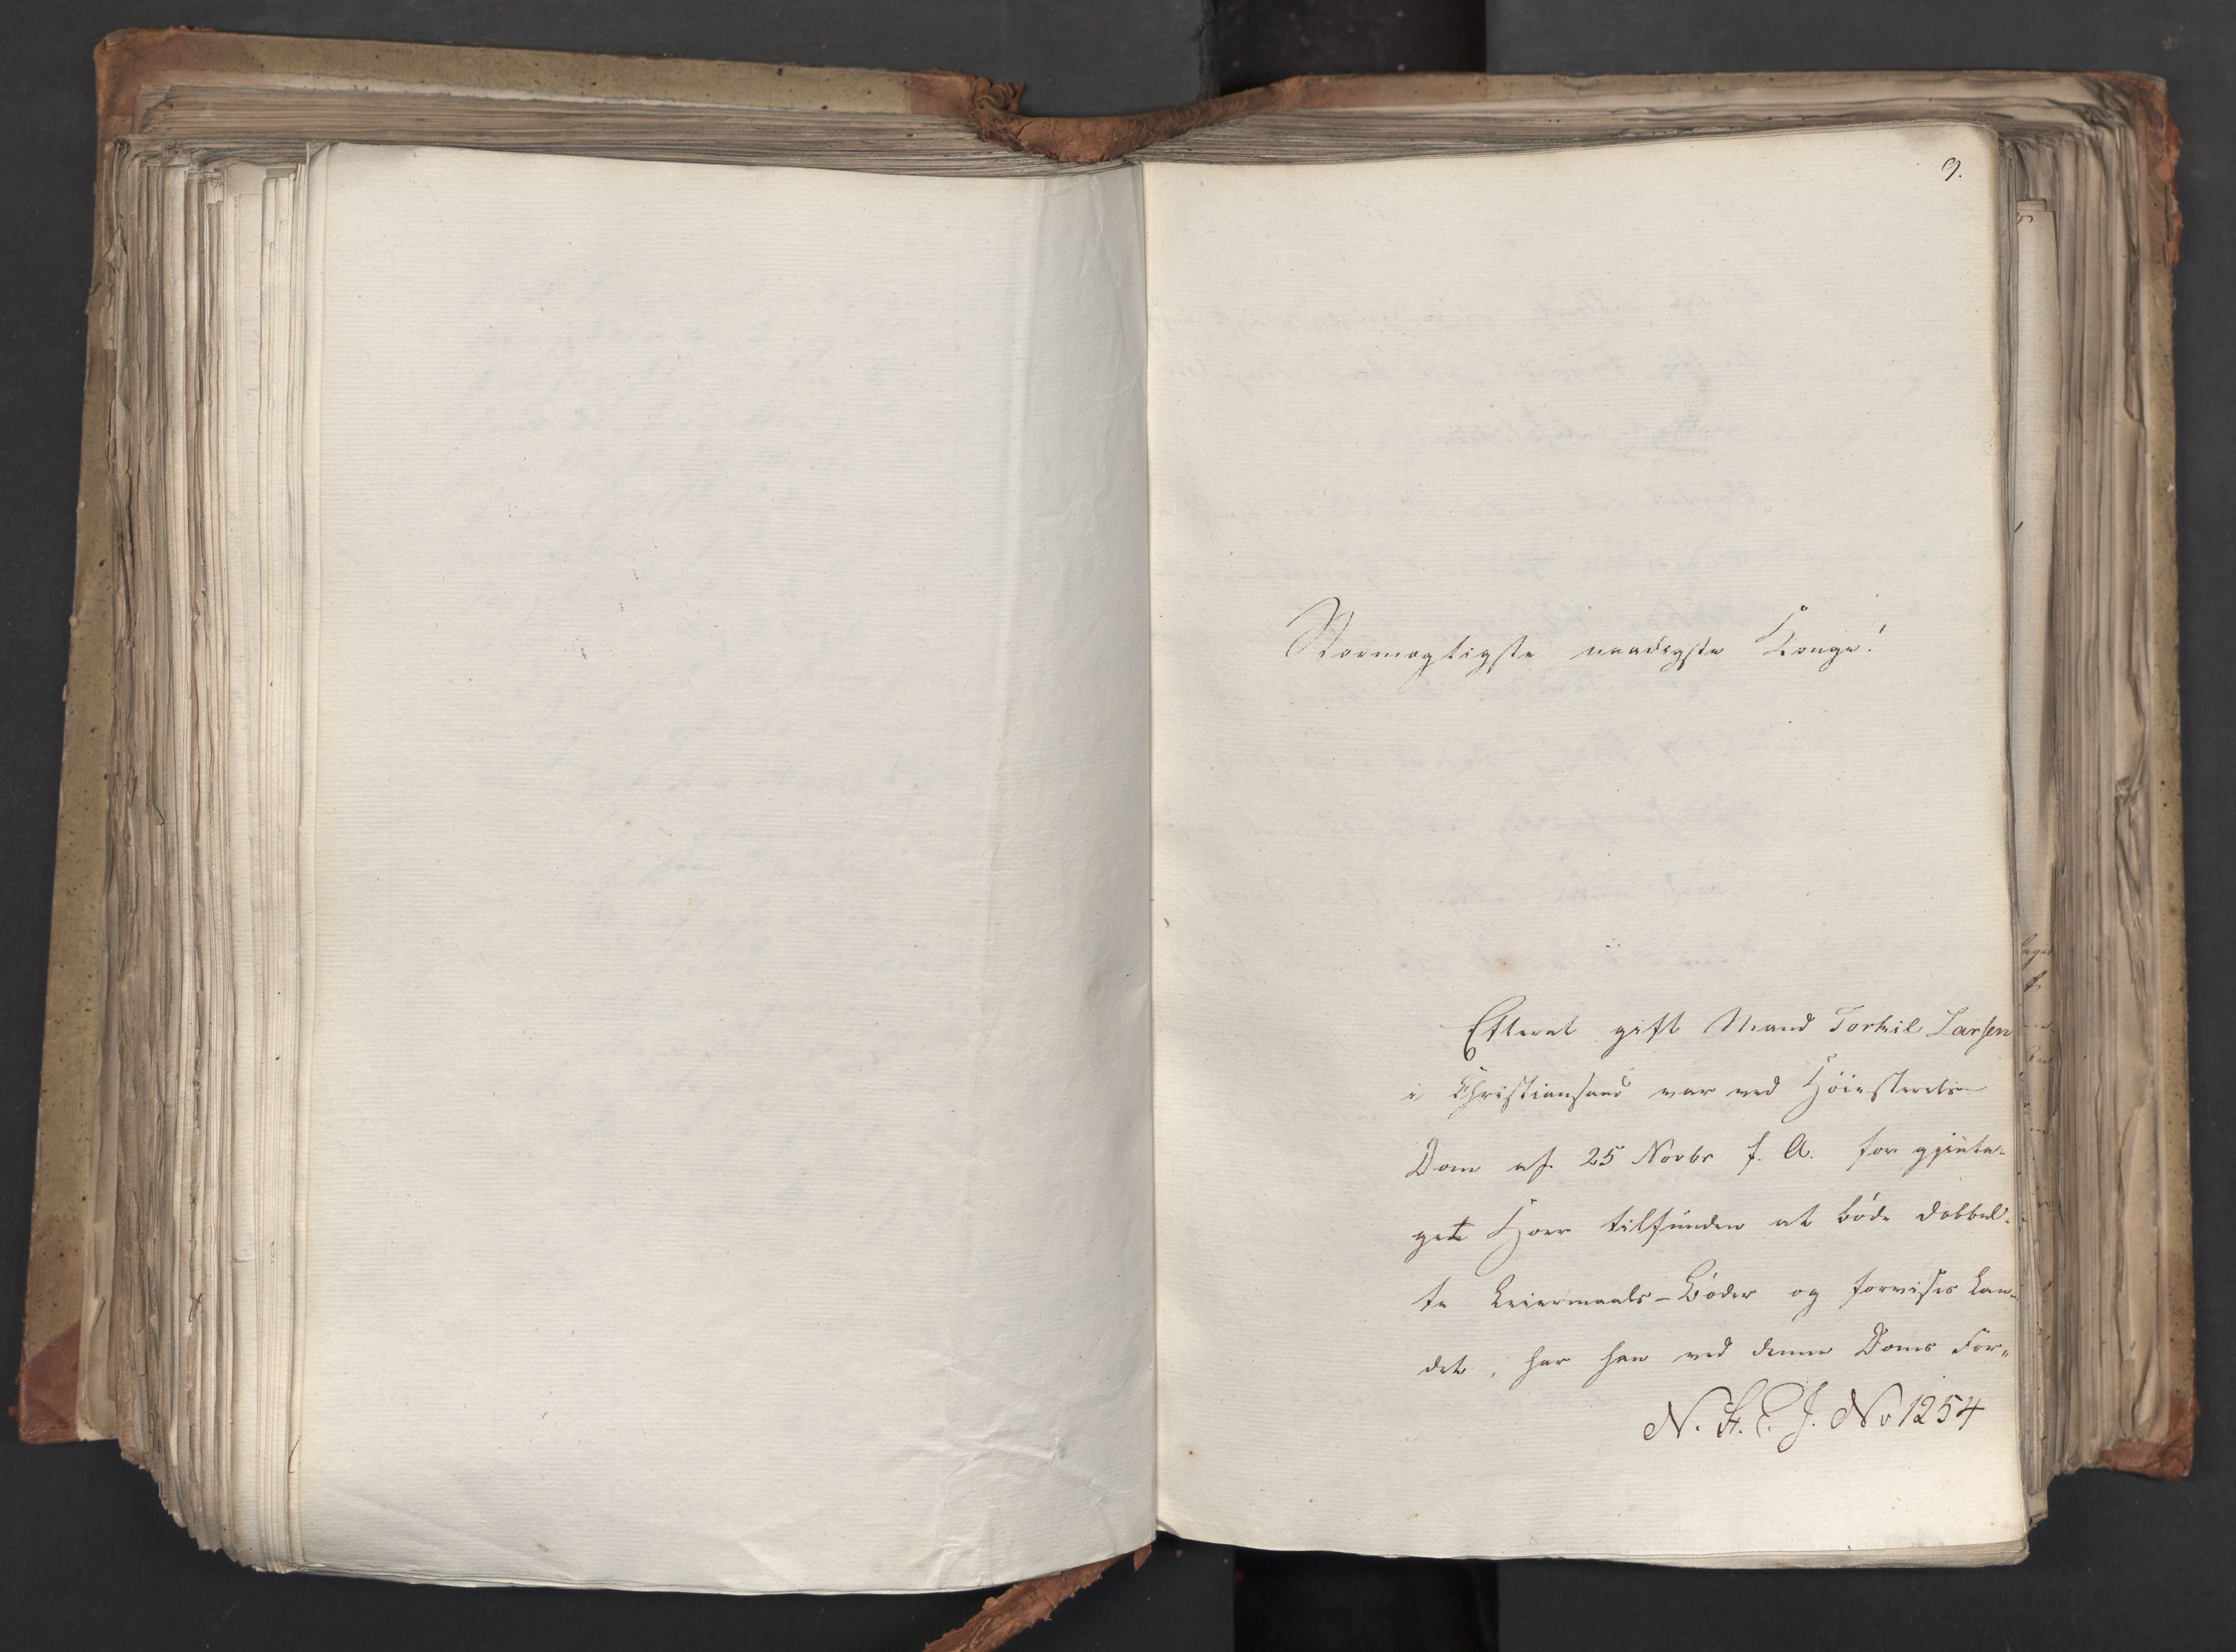 9.
Stormægtigste naadigste Konge!
Efterat gift Mand Torkil Larsen
i Christiansand var ved Höiesterets
Dom af 25 Novbr f. A. for gjenta-
get Hoer tilfunden at bøde dobbel-
te Leiermaals-Bøder og forvises Lan-
det, har han ved denne Doms For-
No 1254